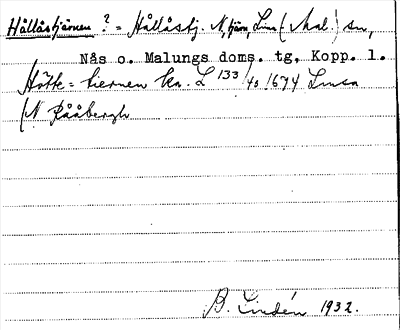 Hållåstjärnen ? = Hållåstj. N, tjärn, Lima (Mal.) sn,
Nås o. Malungs doms. tg, Kopp. l.
Hötte = tiernen ka. L 133/40 1674 Lima
(N Rååbergh
B. Lindén 1932.